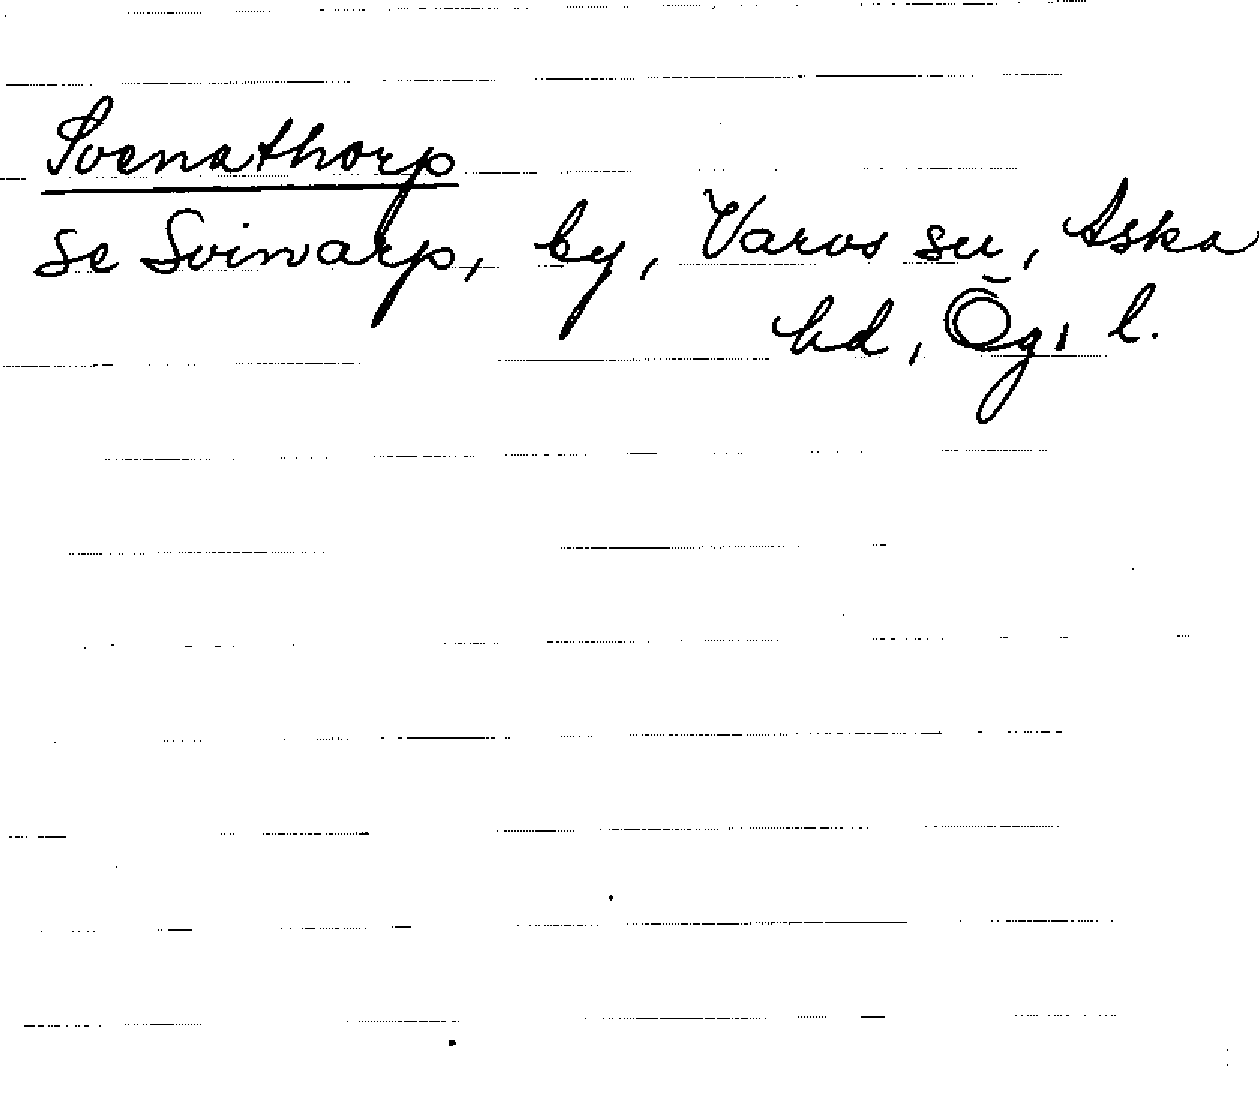 Svenathorp
se Svinvarp, by, Varvs sn, Aska
hd, Ög, l.